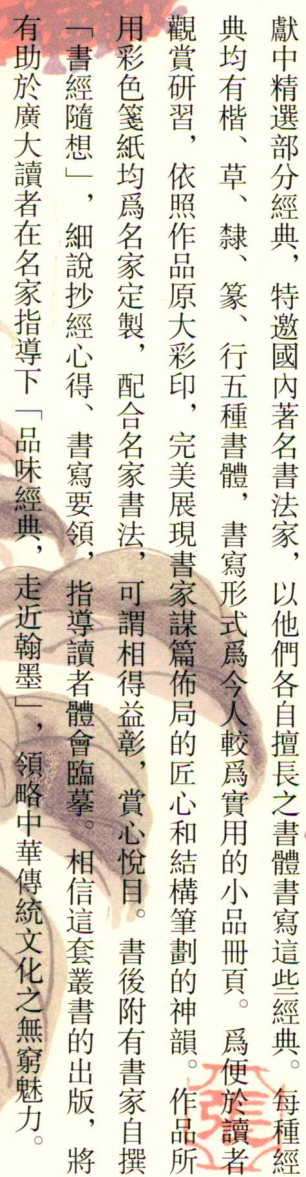 獻中精選部分經典，特邀國內著名書法家，以他們各自擅長之書體書寫這些經典。每種經
典均有楷、草、隸、篆、行五種書體，書寫形式爲今人較爲實用的小品冊頁。爲便於讀者
觀賞研習，依照作品原大彩印，完美展現書家謀篇佈局的匠心和結構筆劃的神韻。作品所
用彩色箋紙均爲名家定製，配合名家書法，可謂相得益彰，賞心悅目。書後附有書家自撰
「書經隨想」，細說抄經心得、書寫要領，指導讀者體會臨摹。相信這套叢書的出版，將
有助於廣大讀者在名家指導下「品味經典，走近翰墨」，領略中華傳統文化之無窮魅力。